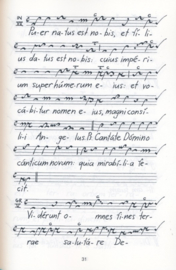 Pu-er na-tus est no-bis, et fi-li-
us da-tus est no-bis: cuius impé-ri-
um super húme-rum e- ius: et vo-
cá-bi-tur nomen e-ius, magni consí-
li- An- ge- lus. Ps. Cantáte Dómino
cánticum novum: quia mirabí-li-a fe-
cit.
Vi-dérunt o- mnes fi-nes ter-
rae sa-lu-tá-re De-
21